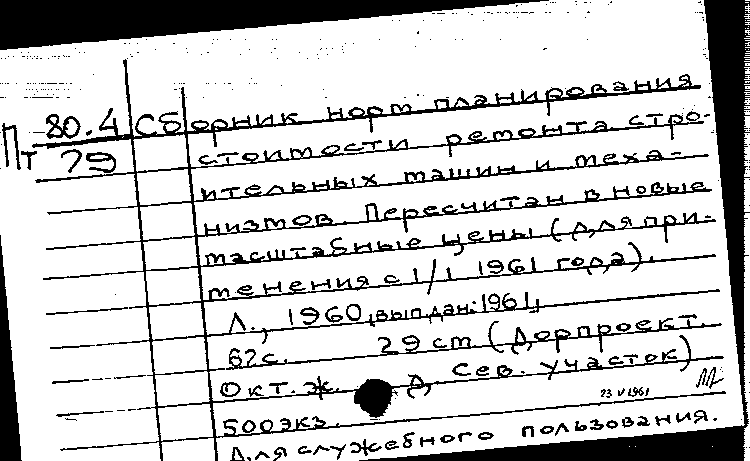 Пт 80.4 Сборник норм планирования
79 стоимости ремонта стро-
ительных машин и меха-
низмов. Пересчитан в новые
масштабные цены (для при-
менения с 1/I 1961 года).
Л., 1960, [вып.дан: 1961,]
62с. 29 см (Дорпроект.
Окт. ж. д, Сев. участок)
500 экз. 23 V 1961
Для служебного пользования.